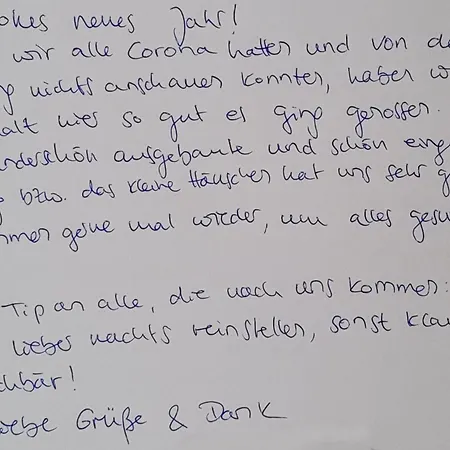 ohes neues Jahr!
wir alle Corona hatten und von de
g nichts anschauen konnten, haben w
alt hier so gut es ging genossen.
nderschön ausgebaute und schön eing
bzw. das kleine Häuschen hat uns sehr g
mmen gerne mal wieder, um alles gesu
Tip an alle, die nach uns kommen:
liebes nachts reinstellen, sonst klau
chbär!
iebe Grüße & Dank